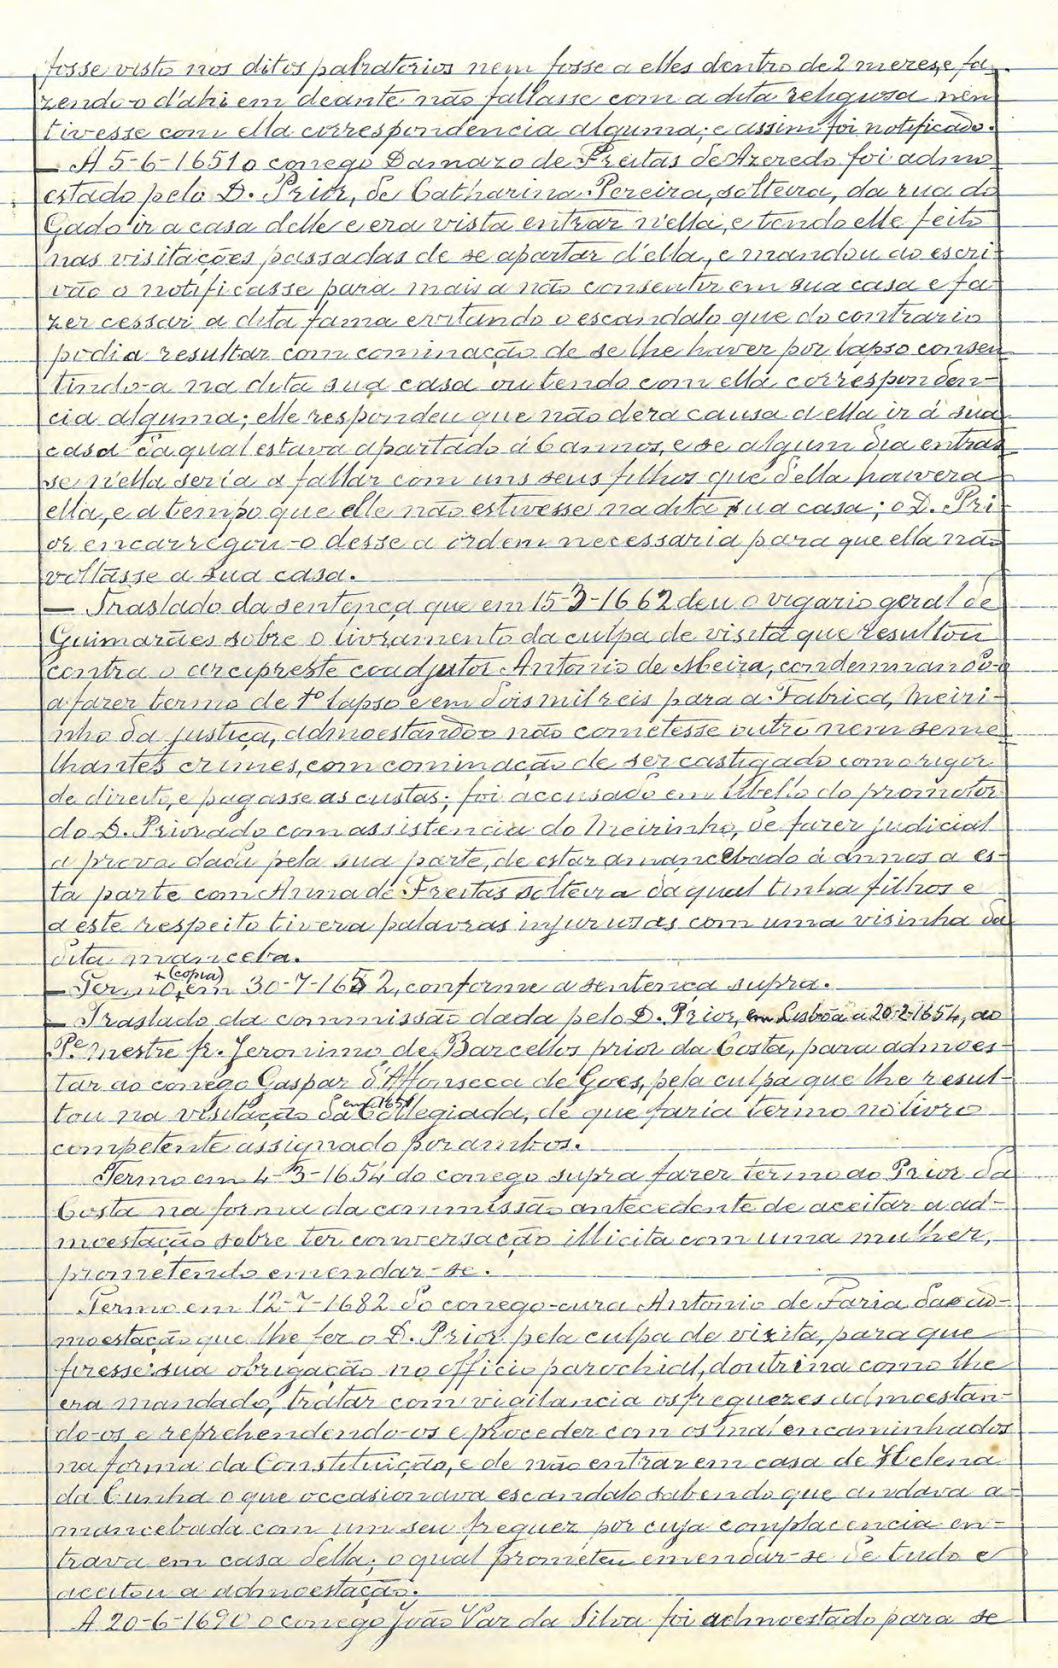 fosse visto nos ditos palratorios nem fosse a elles dentro de 2 mezes, e fa-
zendo-o d'ahi em deante não fallasse com a dita religiosa nem
tivesse com ella correspondencia alguma; e assim foi notificado.
— A 5-6-1651 o conego Damazo de Freitas de Azeredo foi admo-
estado pelo D. Prior, de Catharina Pereira, solteira, da rua do
Gado ir a casa delle e era vista entrar n'ella, e tendo elle feito
nas visitações passadas de se apartar d'ella, e mandou ao escri-
vão o notificasse para mais a não consentir em sua casa e fa-
zer cessar a dita fama evitando o escandalo que do contrario
podia resultar com cominação de se lhe haver por lapso consen-
tindo-a na dita sua casa ou tendo com ella corresponden-
cia alguma; elle respondeu que não dera causa a ella ir á sua
casa da qual estava apartado á 6 annos, e se algum dia entras-
se n'ella seria a fallar com uns seus filhos que d'ella houvera
ella, e a tempo que elle não estivesse na dita sua casa; o D. Pri-
or encarregou-o desse a ordem necessaria para que ella não
voltasse a sua casa.
— Traslado da sentença que em 15-3-1662 deu o vigario geral de
Guimarães sobre o livramento da culpa de visita que resultou
contra o arcipreste coadjutor Antonio de Meira, condemnando-o
a fazer termo de 1º lapso e em dois mil reis para a Fabrica, Meiri-
nho da justiça, admoestando-o não cometesse outro nem seme-
lhantes crimes, com cominação de ser castigado com o rigor
de direito, e pagasse as custas; foi accusado em libello do promotor
do D. Priorado com assistencia do Meirinho, de fazer judicial
a prova dada pela sua parte, de estar amancebado á annos a es-
ta parte com Anna de Freitas solteira da qual tinha filhos e
a este respeito tivera palavras injuriosas com uma visinha da
dita manceba.
— Termo + (copia) em 30-7-1652, conforme a sentença supra.
— Traslado da commissão dada pelo D. Prior, em Lisboa a 20-2-1654, ao
Pe. Mestre fr. Jeronimo de Barcellos prior da Costa, para admoes-
tar ao conego Gaspar d'Affonseca de Goes, pela culpa que lhe resul-
tou na visitação da Collegiada, em 1651 de que faria termo no livro
competente assignado por ambos.
Termo em 4-3-1654 do conego supra fazer termo ao Prior da
Costa na forma da commissão antecedente de aceitar a ad-
moestação sobre ter conversação illicita com uma mulher,
prometendo emendar-se.
Termo em 12-7-1682 do conego-cura Antonio de Faria da ad-
moestação que lhe fez o D. Prior pela culpa de vizita, para que
fizesse sua obrigação no officio parochial, doutrina como lhe
era mandado, tratar com vigilancia os freguezes admoestan-
do-os e reprehendendo-os e proceder com os mal encaminhados
na forma da Constituição, e de não entrar em casa de Helena
da Cunha o que occasionava escandalo sabendo que andava a-
mancebada com um seu freguez por cuja complacencia en-
trava em casa della; o qual prometeu emendar-se de tudo e
aceitou a admoestação.
A 20-6-1690 o conego João Vaz da Silva foi admoestado para se